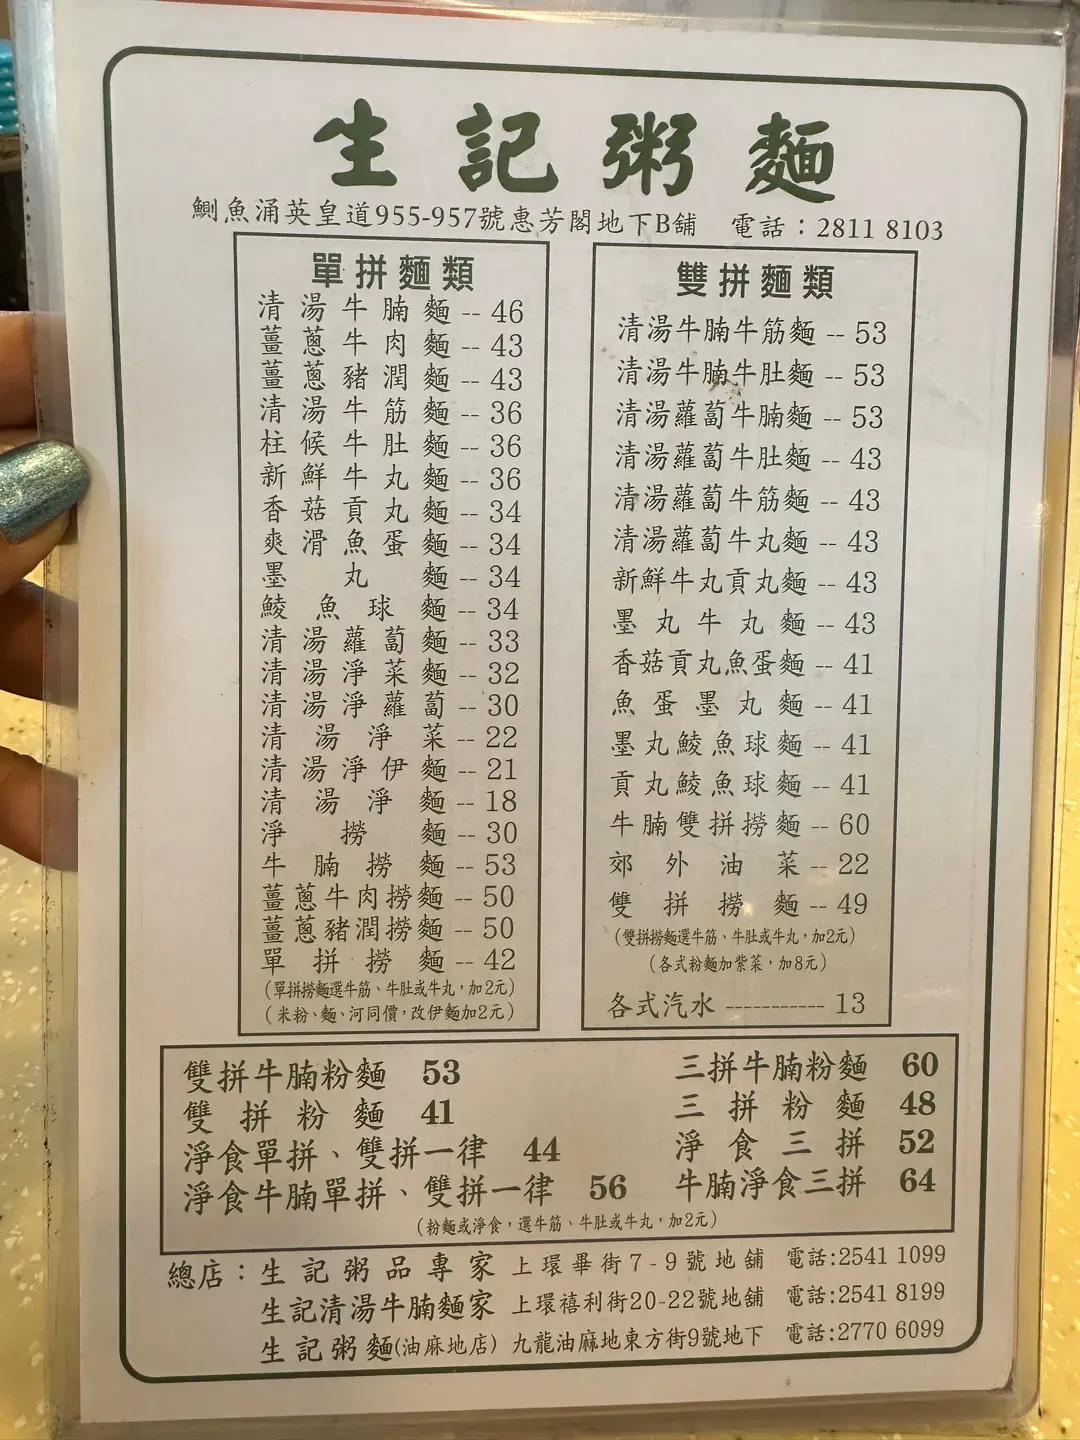 生記粥麵
鰂魚涌英皇道955-957號惠芳閣地下B舖 電話：2811 8103
單拼麵類
清湯牛腩麵 -- 46
薑蔥牛肉麵 -- 43
薑蔥豬潤麵 -- 43
清湯牛筋麵 -- 36
柱候牛肚麵 -- 36
新鮮牛丸麵 -- 36
香菇貢丸麵 -- 34
爽滑魚蛋麵 -- 34
墨丸麵 -- 34
鯪魚球麵 -- 34
清湯蘿蔔麵 -- 33
清湯淨菜麵 -- 32
清湯淨蘿蔔 -- 30
清湯淨菜 -- 22
清湯淨伊麵 -- 21
清湯淨麵 -- 18
淨撈麵 -- 30
牛腩撈麵 -- 53
薑蔥牛肉撈麵 -- 50
薑蔥豬潤撈麵 -- 50
單拼撈麵 -- 42
（單拼撈麵選牛筋、牛肚或牛丸，加2元）
（米粉、麵、河同價，改伊麵加2元）
雙拼麵類
清湯牛腩牛筋麵 -- 53
清湯牛腩牛肚麵 -- 53
清湯蘿蔔牛腩麵 -- 53
清湯蘿蔔牛肚麵 -- 43
清湯蘿蔔牛筋麵 -- 43
清湯蘿蔔牛丸麵 -- 43
新鮮牛丸貢丸麵 -- 43
墨丸牛丸麵 -- 43
香菇貢丸魚蛋麵 -- 41
魚蛋墨丸麵 -- 41
墨丸鯪魚球麵 -- 41
貢丸鯪魚球麵 -- 41
牛腩雙拼撈麵 -- 60
郊外油菜 -- 22
雙拼撈麵 -- 49
（雙拼撈麵選牛筋、牛肚或牛丸，加2元）
（各式粉麵加紫菜，加8元）
各式汽水 ----------- 13
雙拼牛腩粉麵 53
雙拼粉麵 41
淨食單拼、雙拼一律 44
淨食牛腩單拼、雙拼一律 56
三拼牛腩粉麵 60
三拼粉麵 48
淨食三拼 52
牛腩淨食三拼 64
（粉麵或淨食，選牛筋、牛肚或牛丸，加2元）
總店：生記粥品專家 上環畢街7-9號地舖 電話:2541 1099
生記清湯牛腩麵家 上環禧利街20-22號地舖 電話:2541 8199
生記粥麵(油麻地店) 九龍油麻地東方街9號地下 電話:2770 6099